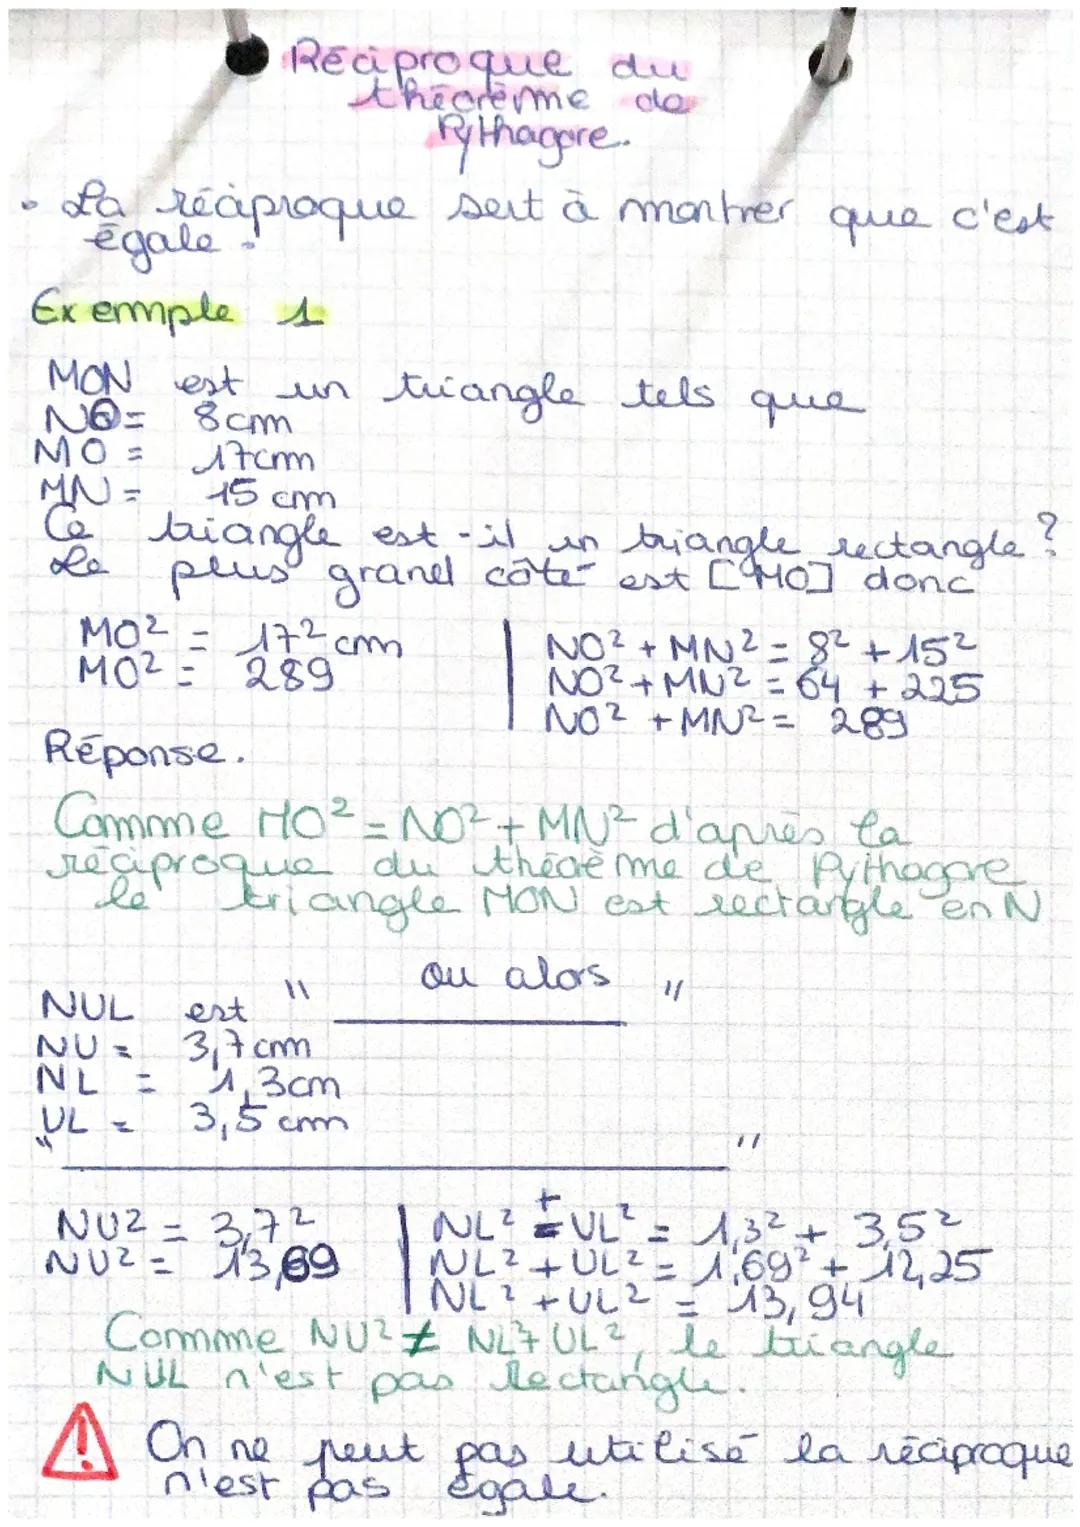 Réciproque du
théorème de
Pythagore.
• La réciproque sert à montrer que c'est
égale.
Exemple 1
MON est un triangle tels que
NO = 8cm
MO = 17cm
MN = 15 cm
Ce triangle est-il un triangle rectangle ?
Le plus grand côté est [MO] donc
MO² = 17² cm | NO² + MN² = 8² + 15²
MO² = 289 | NO² + MN² = 64 + 225
NO² + MN² = 289
Réponse.
Comme MO² = NO² + MN² d'après la
réciproque du théorème de Pythagore
le triangle MON est rectangle en N
ou alors
NUL est " "
NU = 3,7cm
NL = 1,3cm
UL = 3,5 cm
" "
NU² = 3,7² | NL² + UL² = 1,3² + 3,5²
NU² = 13,69 | NL² + UL² = 1,69² + 12,25
NL² + UL² = 13,94
Comme NU² ≠ NL² + UL², le triangle
NUL n'est pas rectangle.
! On ne peut pas utilisé la réciproque
n'est pas égale.